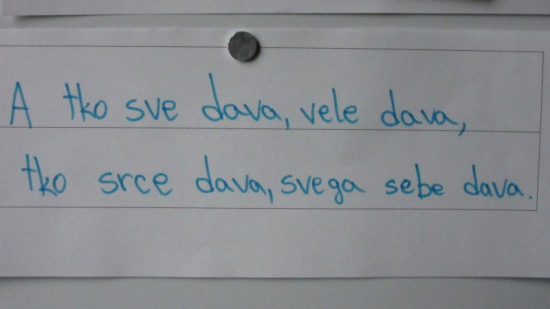 A tko sve dava, vele dava,
tko srce dava, svega sebe dava.